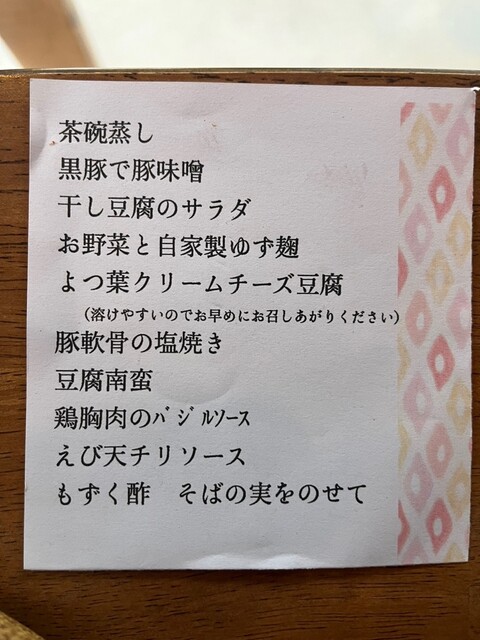 茶碗蒸し
黒豚で豚味噌
干し豆腐のサラダ
お野菜と自家製ゆず麹
よつ葉クリームチーズ豆腐
（溶けやすいのでお早めにお召しあがりください）
豚軟骨の塩焼き
豆腐南蛮
鶏胸肉のﾊﾞｼﾞﾙｿｰｽ
えび天チリソース
もずく酢　そばの実をのせて